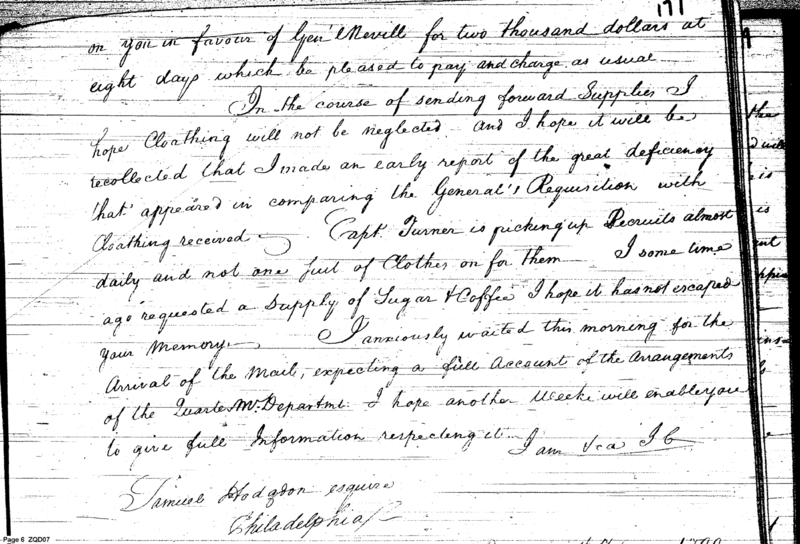 171
on you in favour of Gen'l Nevill for two thousand dollars at
eight days which be pleased to pay and charge as usual
In the course of sending forward Supplies I
hope Cloathing will not be neglected and I hope it will be
recollected that I made an early report of the great deficiency
that appeared in comparing the General's Requisition with
Cloathing received — Capt. Turner is picking up Recruits almost
daily and not one suit of Clothes on for them — I some time
ago requested a Supply of Sugar & Coffee I hope it has not escaped
your Memory. — I anxiously waited this morning for the
Arrival of the Mail, expecting a full Account of the Arrangements
of the Quarter Mr. Departmt. I hope another Week will enable you
to give full Information respecting it — I am &ca I C
Samuel Hodgdon esquire
Philadelphia
the
is
is
Page 6 ZQD07